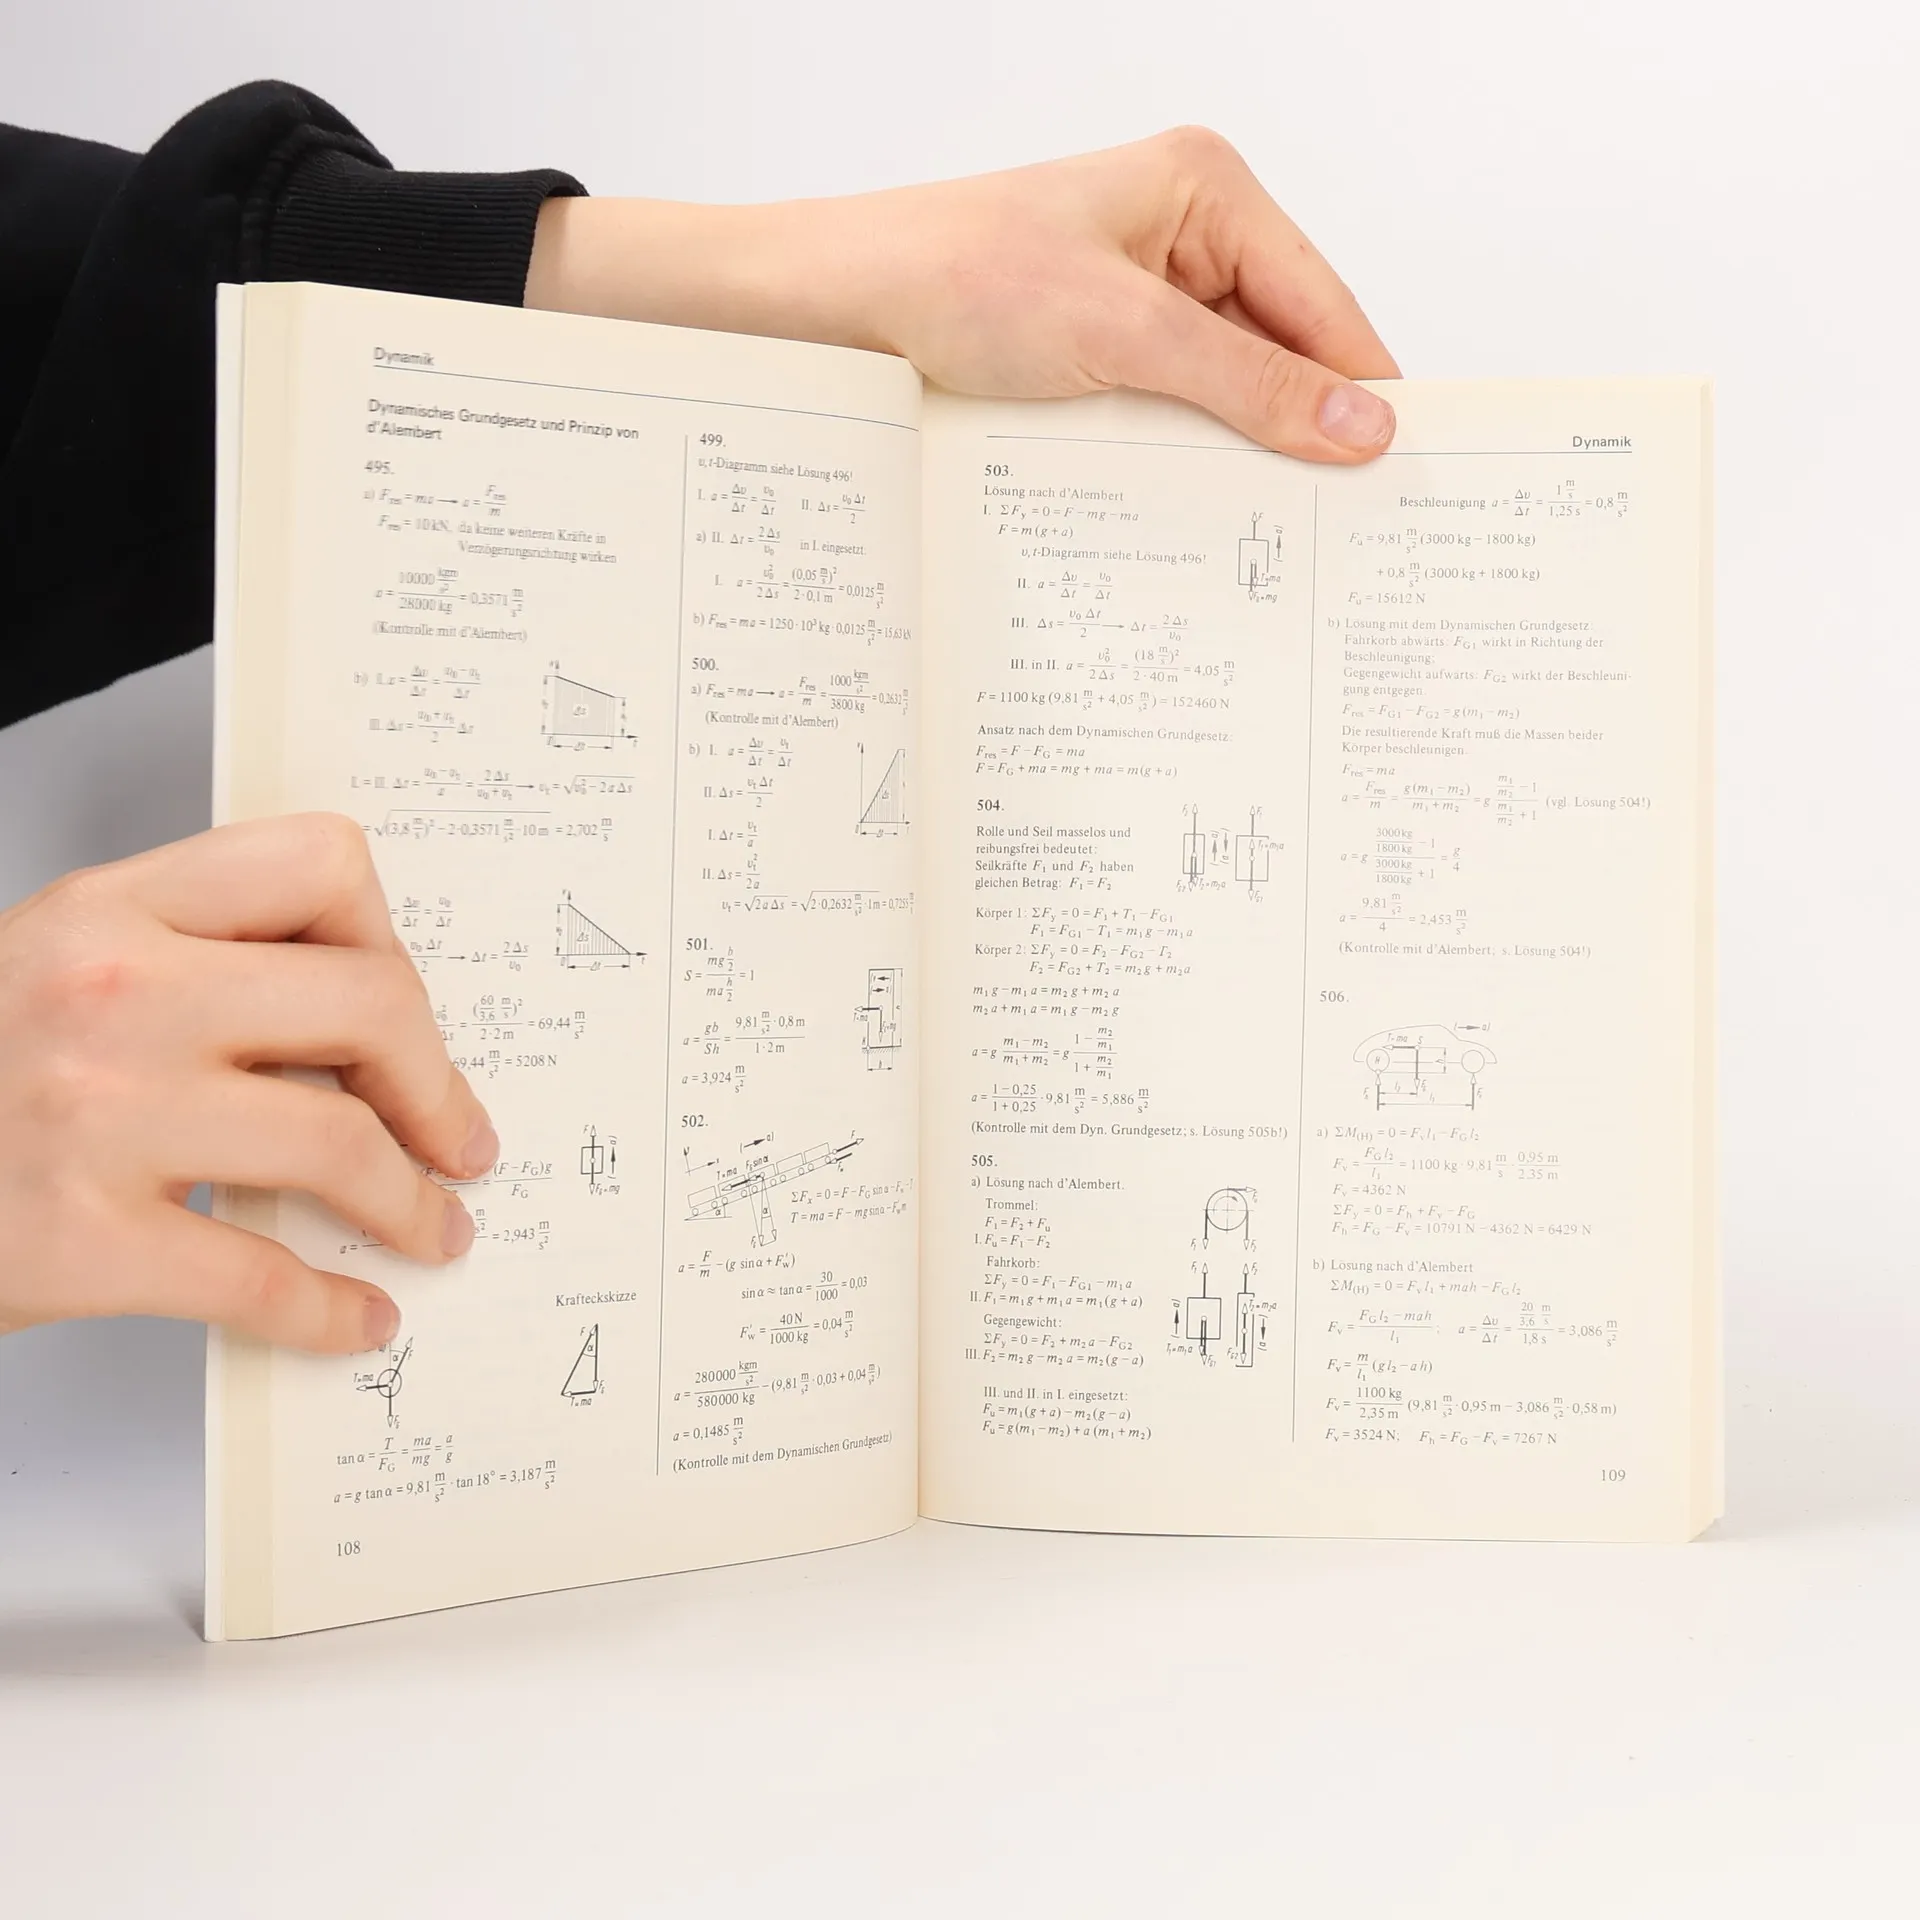 Dynamik
Dynamisches Grundgesetz und Prinzip von
d'Alembert
495.
a) F_res = ma → a = F_res/m
F_res = 10 kN, da keine weiteren Kräfte in
Verzögerungsrichtung wirken
a = 10000 kgm/s² / 28000 kg = 0,3571 m/s²
(Kontrolle mit d'Alembert)
b) I. a = Δυ/Δt = (υ₀ − υt)/Δt
II. Δs = (υ₀ + υt)/2 Δt
I. = II. Δt = (υ₀ − υt)/a = 2Δs/(υ₀ + υt) → υt = √(υ₀² − 2aΔs)
= √((3,8 m/s)² − 2·0,3571 m/s² · 10 m) = 2,702 m/s
= Δυ/Δt = υ₀/Δt
υ₀ Δt/2 → Δt = 2Δs/υ₀
= (60/3,6 m/s)² / 2·2 m = 69,44 m/s²
69,44 m/s² = 5208 N
= (F − F_G)g / F_G
a = = 2,943 m/s²
Krafteckskizze
tan α = T/F_G = ma/mg = a/g
a = g tan α = 9,81 m/s² · tan 18° = 3,187 m/s²
108
499.
υ, t-Diagramm siehe Lösung 496!
I. a = Δυ/Δt = υ₀/Δt II. Δs = υ₀ Δt/2
a) II. Δt = 2Δs/υ₀ in I. eingesetzt:
I. a = υ₀²/2Δs = (0,05 m/s)²/2·0,1 m = 0,0125 m/s²
b) F_res = ma = 1250·10³ kg·0,0125 m/s² = 15,63 kN
500.
a) F_res = ma → a = F_res/m = 1000 kgm/s² / 3800 kg = 0,2632 m/s²
(Kontrolle mit d'Alembert)
b) I. a = Δυ/Δt = υt/Δt
II. Δs = υt Δt/2
I. Δt = υt/a
II. Δs = υt²/2a
υt = √(2aΔs) = √(2·0,2632 m/s² · 1m) = 0,7255 m/s
501.
S = mg b/2 / ma h/2 = 1
a = gb/Sh = 9,81 m/s² · 0,8 m / 1·2 m
a = 3,924 m/s²
502.
ΣFx = 0 = F − F_G sin α − F_w − T
T = ma = F − mg sin α − F'_w m
a = F/m − (g sin α + F'_w)
sin α ≈ tan α = 30/1000 = 0,03
F'_w = 40 N/1000 kg = 0,04 m/s²
a = 280000 kgm/s² / 580000 kg − (9,81 m/s² · 0,03 + 0,04 m/s²)
a = 0,1485 m/s²
(Kontrolle mit dem Dynamischen Grundgesetz)
Dynamik
503.
Lösung nach d'Alembert
I. ΣFy = 0 = F − mg − ma
F = m(g + a)
υ, t-Diagramm siehe Lösung 496!
II. a = Δυ/Δt = υ₀/Δt
III. Δs = υ₀ Δt/2 → Δt = 2Δs/υ₀
III. in II. a = υ₀²/2Δs = (18 m/s)²/2·40 m = 4,05 m/s²
F = 1100 kg (9,81 m/s² + 4,05 m/s²) = 152460 N
Ansatz nach dem Dynamischen Grundgesetz:
F_res = F − F_G = ma
F = F_G + ma = mg + ma = m(g + a)
504.
Rolle und Seil masselos und
reibungsfrei bedeutet:
Seilkräfte F₁ und F₂ haben
gleichen Betrag: F₁ = F₂
Körper 1: ΣFy = 0 = F₁ + T₁ − F_G1
F₁ = F_G1 − T₁ = m₁g − m₁a
Körper 2: ΣFy = 0 = F₂ − F_G2 − T₂
F₂ = F_G2 + T₂ = m₂g + m₂a
m₁g − m₁a = m₂g + m₂a
m₂a + m₁a = m₁g − m₂g
a = g (m₁ − m₂)/(m₁ + m₂) = g (1 − m₂/m₁)/(1 + m₂/m₁)
a = (1 − 0,25)/(1 + 0,25) · 9,81 m/s² = 5,886 m/s²
(Kontrolle mit dem Dyn. Grundgesetz; s. Lösung 505b!)
505.
a) Lösung nach d'Alembert.
Trommel:
F₁ = F₂ + Fu
I. Fu = F₁ − F₂
Fahrkorb:
ΣFy = 0 = F₁ − F_G1 − m₁a
II. F₁ = m₁g + m₁a = m₁(g + a)
Gegengewicht:
ΣFy = 0 = F₂ + m₂a − F_G2
III. F₂ = m₂g − m₂a = m₂(g − a)
III. und II. in I. eingesetzt:
Fu = m₁(g + a) − m₂(g − a)
Fu = g(m₁ − m₂) + a(m₁ + m₂)
Beschleunigung a = Δυ/Δt = 1 m/s / 1,25 s = 0,8 m/s²
Fu = 9,81 m/s² (3000 kg − 1800 kg)
+ 0,8 m/s² (3000 kg + 1800 kg)
Fu = 15612 N
b) Lösung mit dem Dynamischen Grundgesetz:
Fahrkorb abwärts: F_G1 wirkt in Richtung der
Beschleunigung;
Gegengewicht aufwärts: F_G2 wirkt der Beschleuni-
gung entgegen.
F_res = F_G1 − F_G2 = g(m₁ − m₂)
Die resultierende Kraft muß die Massen beider
Körper beschleunigen.
F_res = ma
a = F_res/m = g(m₁ − m₂)/(m₁ + m₂) = g (m₁/m₂ − 1)/(m₁/m₂ + 1) (vgl. Lösung 504!)
a = g (3000 kg/1800 kg − 1)/(3000 kg/1800 kg + 1) = g/4
a = 9,81 m/s² / 4 = 2,453 m/s²
(Kontrolle mit d'Alembert; s. Lösung 504!)
506.
a) ΣM(H) = 0 = Fv l₁ − F_G l₂
Fv = F_G l₂/l₁ = 1100 kg · 9,81 m/s · 0,95 m/2,35 m
Fv = 4362 N
ΣFy = 0 = Fh + Fv − F_G
Fh = F_G − Fv = 10791 N − 4362 N = 6429 N
b) Lösung nach d'Alembert
ΣM(H) = 0 = Fv l₁ + mah − F_G l₂
Fv = (F_G l₂ − mah)/l₁; a = Δυ/Δt = 20/3,6 m/s / 1,8 s = 3,086 m/s²
Fv = m/l₁ (gl₂ − ah)
Fv = 1100 kg/2,35 m (9,81 m/s² · 0,95 m − 3,086 m/s² · 0,58 m)
Fv = 3524 N; Fh = F_G − Fv = 7267 N
109